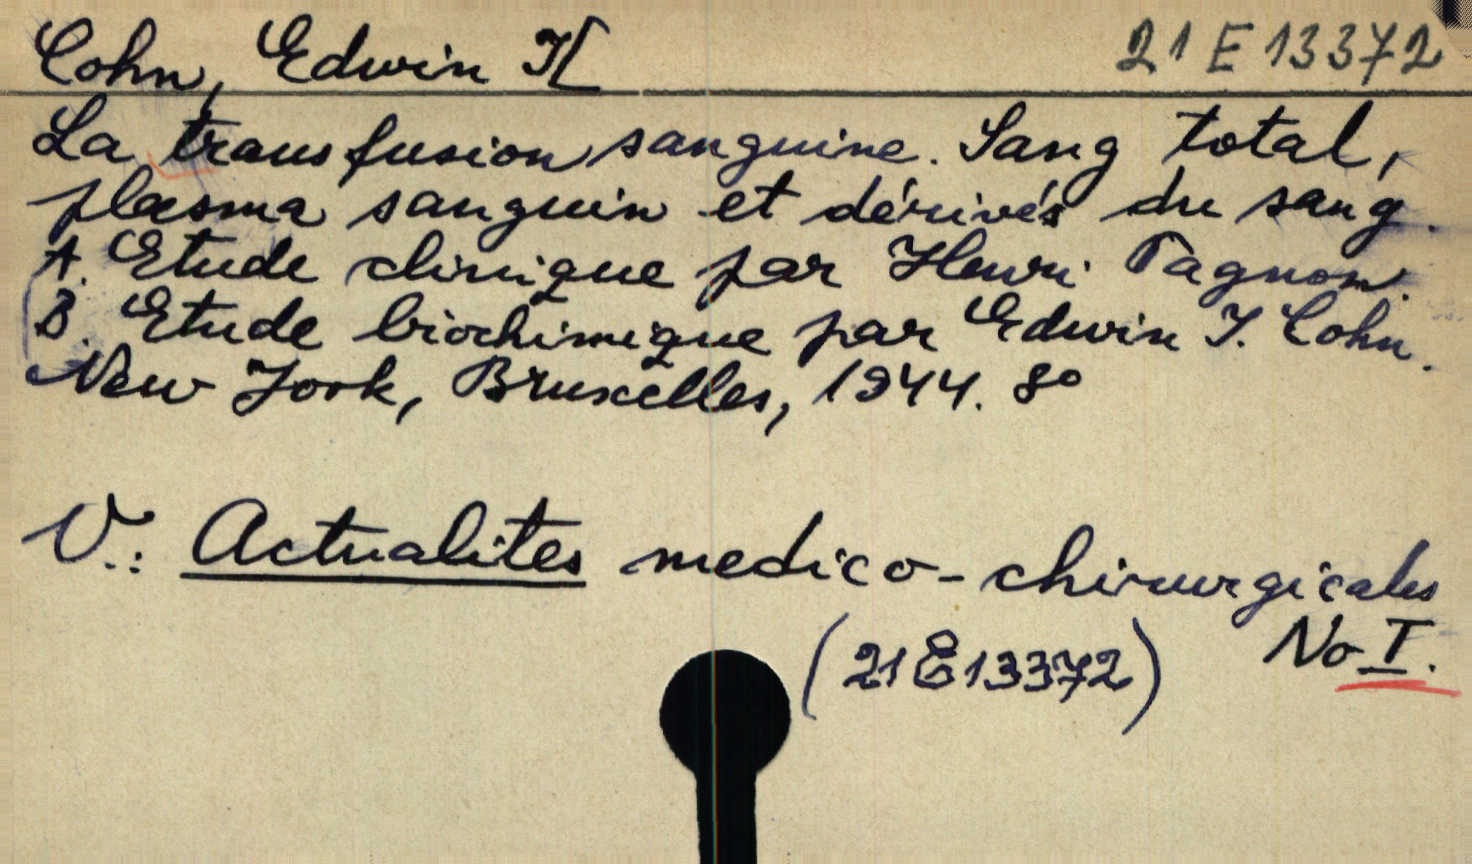 Cohn, Edwin J[ 21 E 13372
La transfusion sanguine. Sang total,
plasma sanguin et dérivés du sang.
A. Etude clinique par Henri Tagnon.
B. Etude biochimique par Edwin J. Cohn.
New York, Bruxelles, 1944. 8°
V.: Actualites medico-chirurgicales
(21E13372) No I.